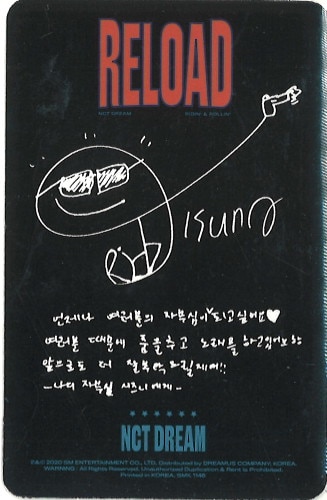 RELOAD
NCT DREAM
Jisung
언제나 여러분의 자부심이 되고싶어요♡
여러분 때문에 춤을추고 노래를 하고있어요
앞으로도 더 잘부탁드릴게여!!
-나의 자부심 시즈니에게-
NCT DREAM
℗&© 2020 SM ENTERTAINMENT CO., LTD. Distributed by DREAMUS COMPANY, KOREA.
WARNING : All Rights Reserved. Unauthorized Duplication & Rent is Prohibited.
Printed in KOREA.